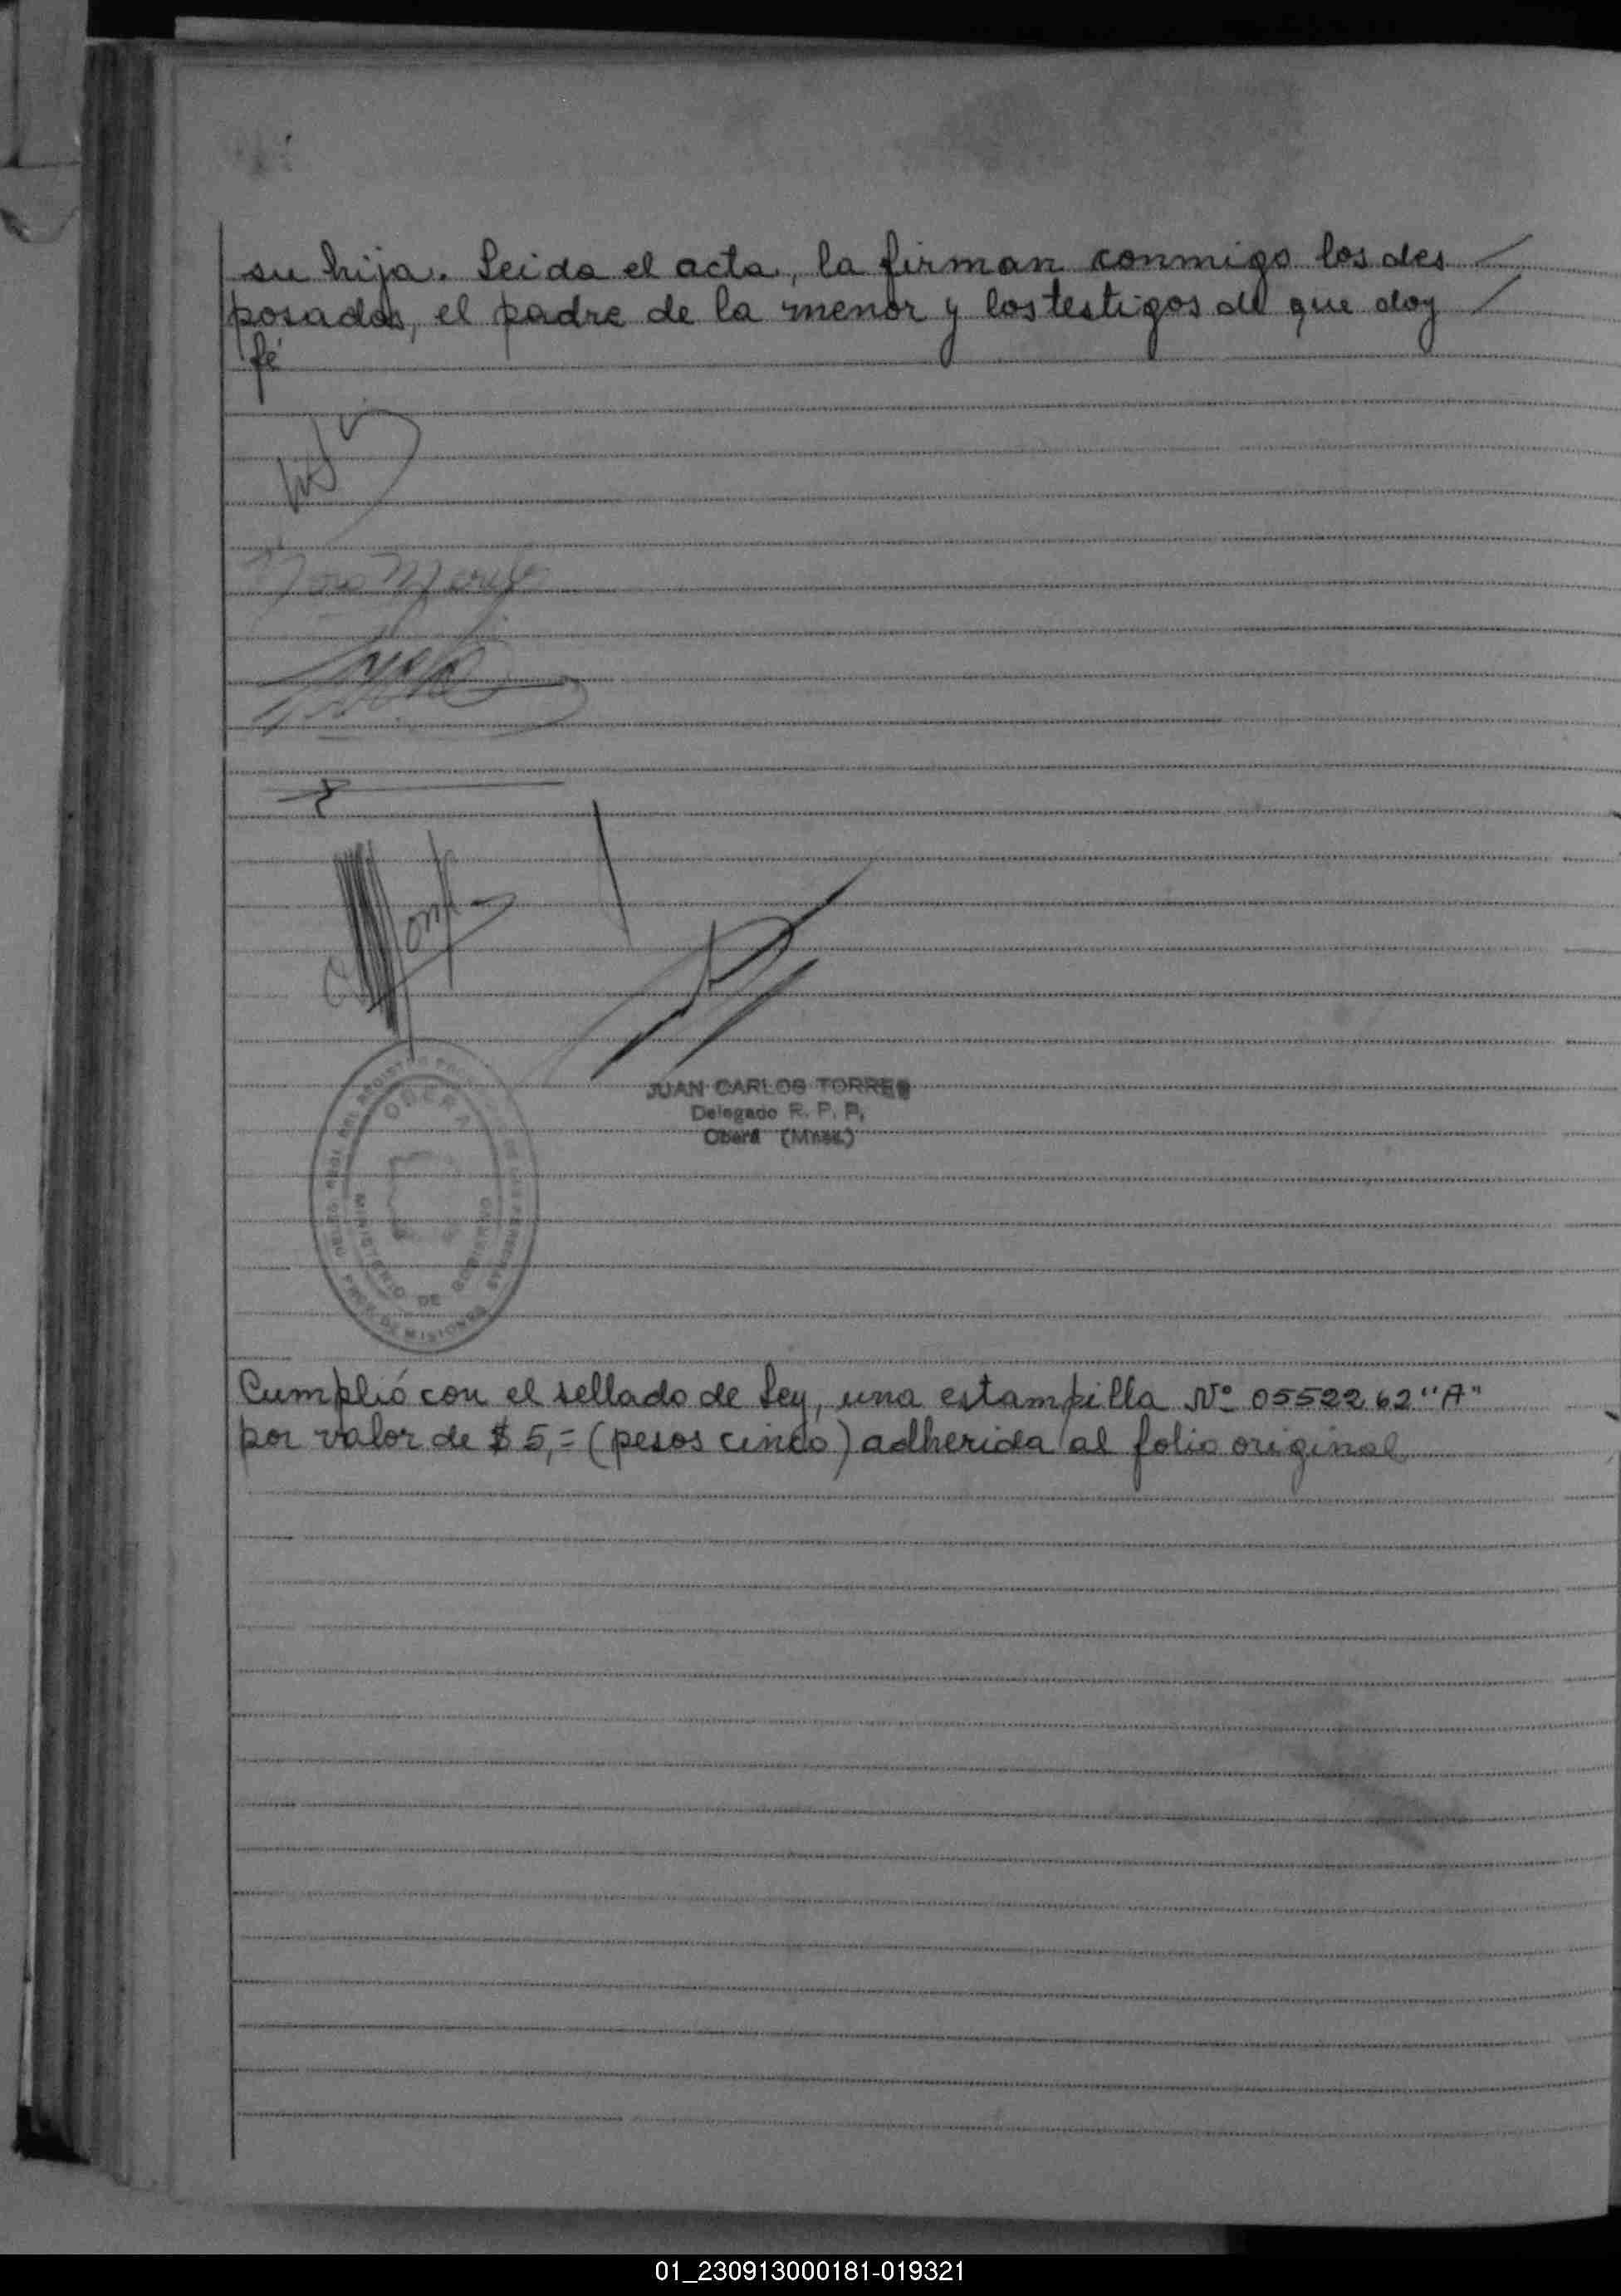 su hija. Leida el acta, la firman conmigo los des
posados, el padre de la menor y los testigos de que doy
fé
JUAN CARLOS TORRES
Delegado R. P. P.
Oberá (Mnes.)
OBERA
MINISTERIO DE GOBIERNO
PROV. DE MISIONES
Cumplió con el sellado de Ley, una estampilla Nº 0552262 "A"
por valor de $ 5,= (pesos cinco) adherida al folio original
01_230913000181-019321